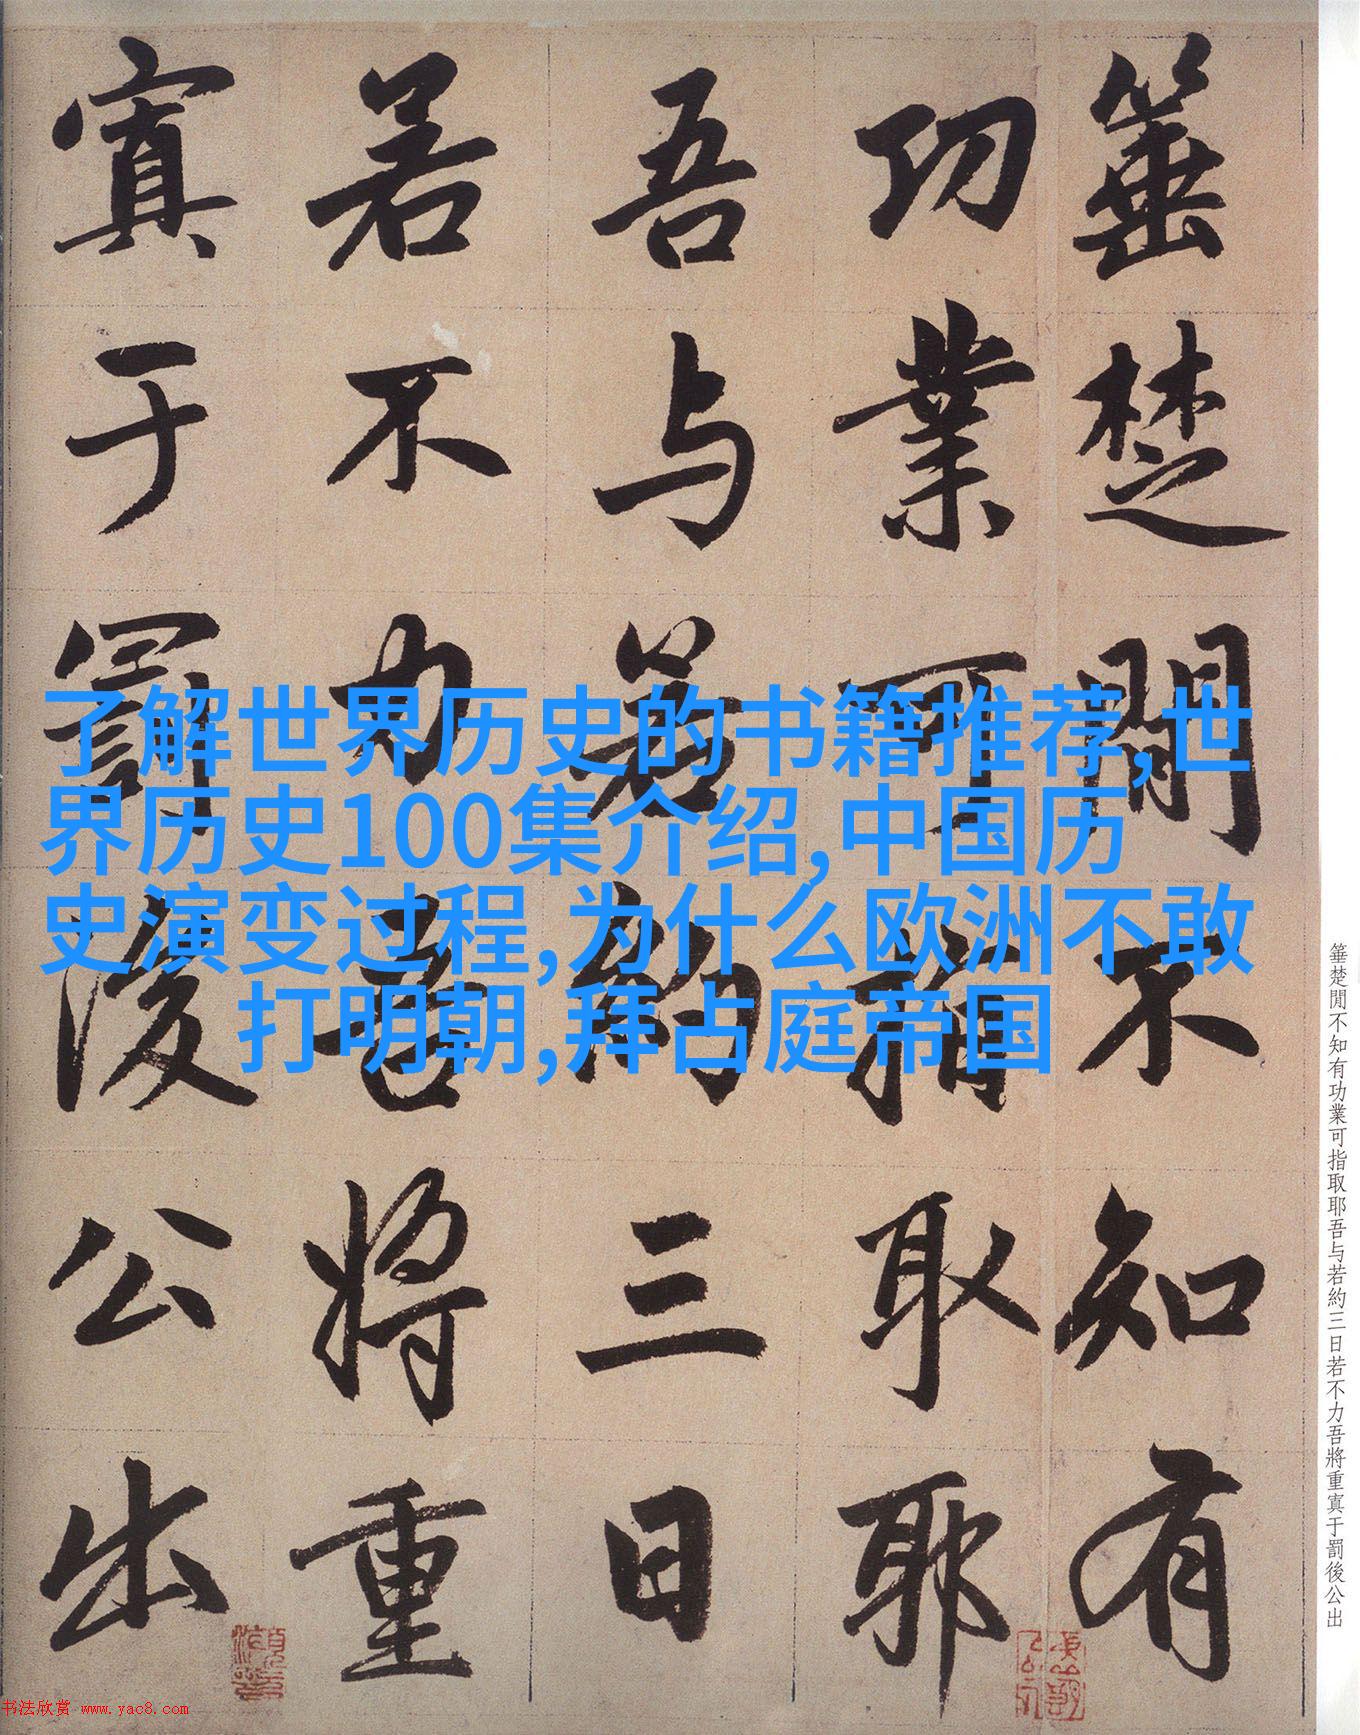 箠楚間不知有
功業可指取耶
吾与若約三日
若不力吾將重
寘于罰後公出
了解世界历史的书籍推荐,世
界历史100集介绍,中国历
史演变过程,为什么欧洲不敢
打明朝,拜占庭帝国
箠楚閒不知有功業可指取耶吾与若約三日若不力吾將重寘于罰後公出
书法欣赏 www.yac8.com